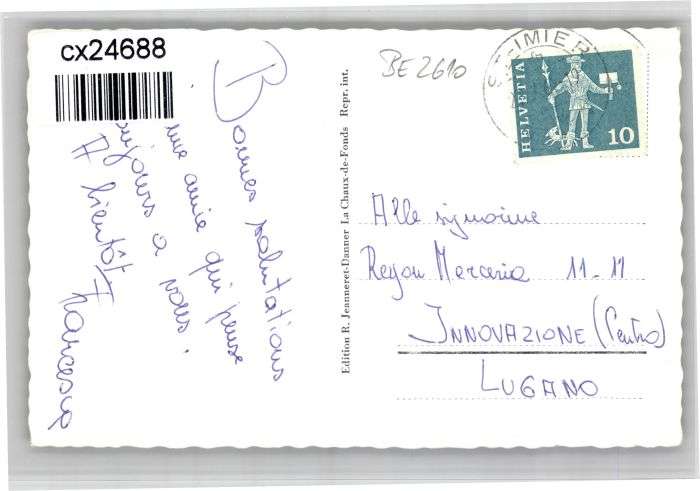 cx24688
Bonnes salutations
une amie qui pense
toujours a vous.
A bientôt
Francesca
Edition R. Jeanneret-Danner La Chaux-de-Fonds Repr. int.
BE 2610
ST-IMIER
HELVETIA
10
Alle signorine
Rayon Merceria 11-11
INNOVAZIONE (Centro)
LUGANO